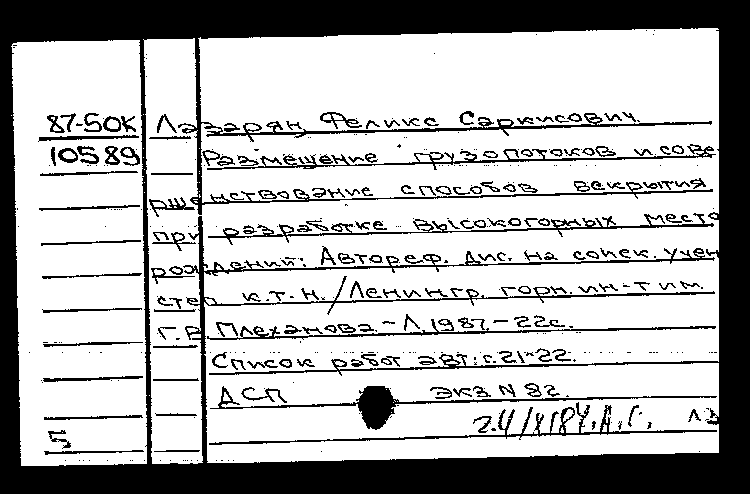 87-50К Лазарян Феликс Саркисович.
10589 Размещение грузопотоков и сове-
ршенствование способов вскрытия
при разработке высокогорных место
рождений: Автореф. дис. на соиск. учен
степ к.т.н. /Ленингр. горн. ин-т им.
Г.В. Плеханова - Л, 1987. - 22с.
Список работ авт: с. 21-22.
ДСП ЭКЗ N 82.
5 А.Г. ЛЗ